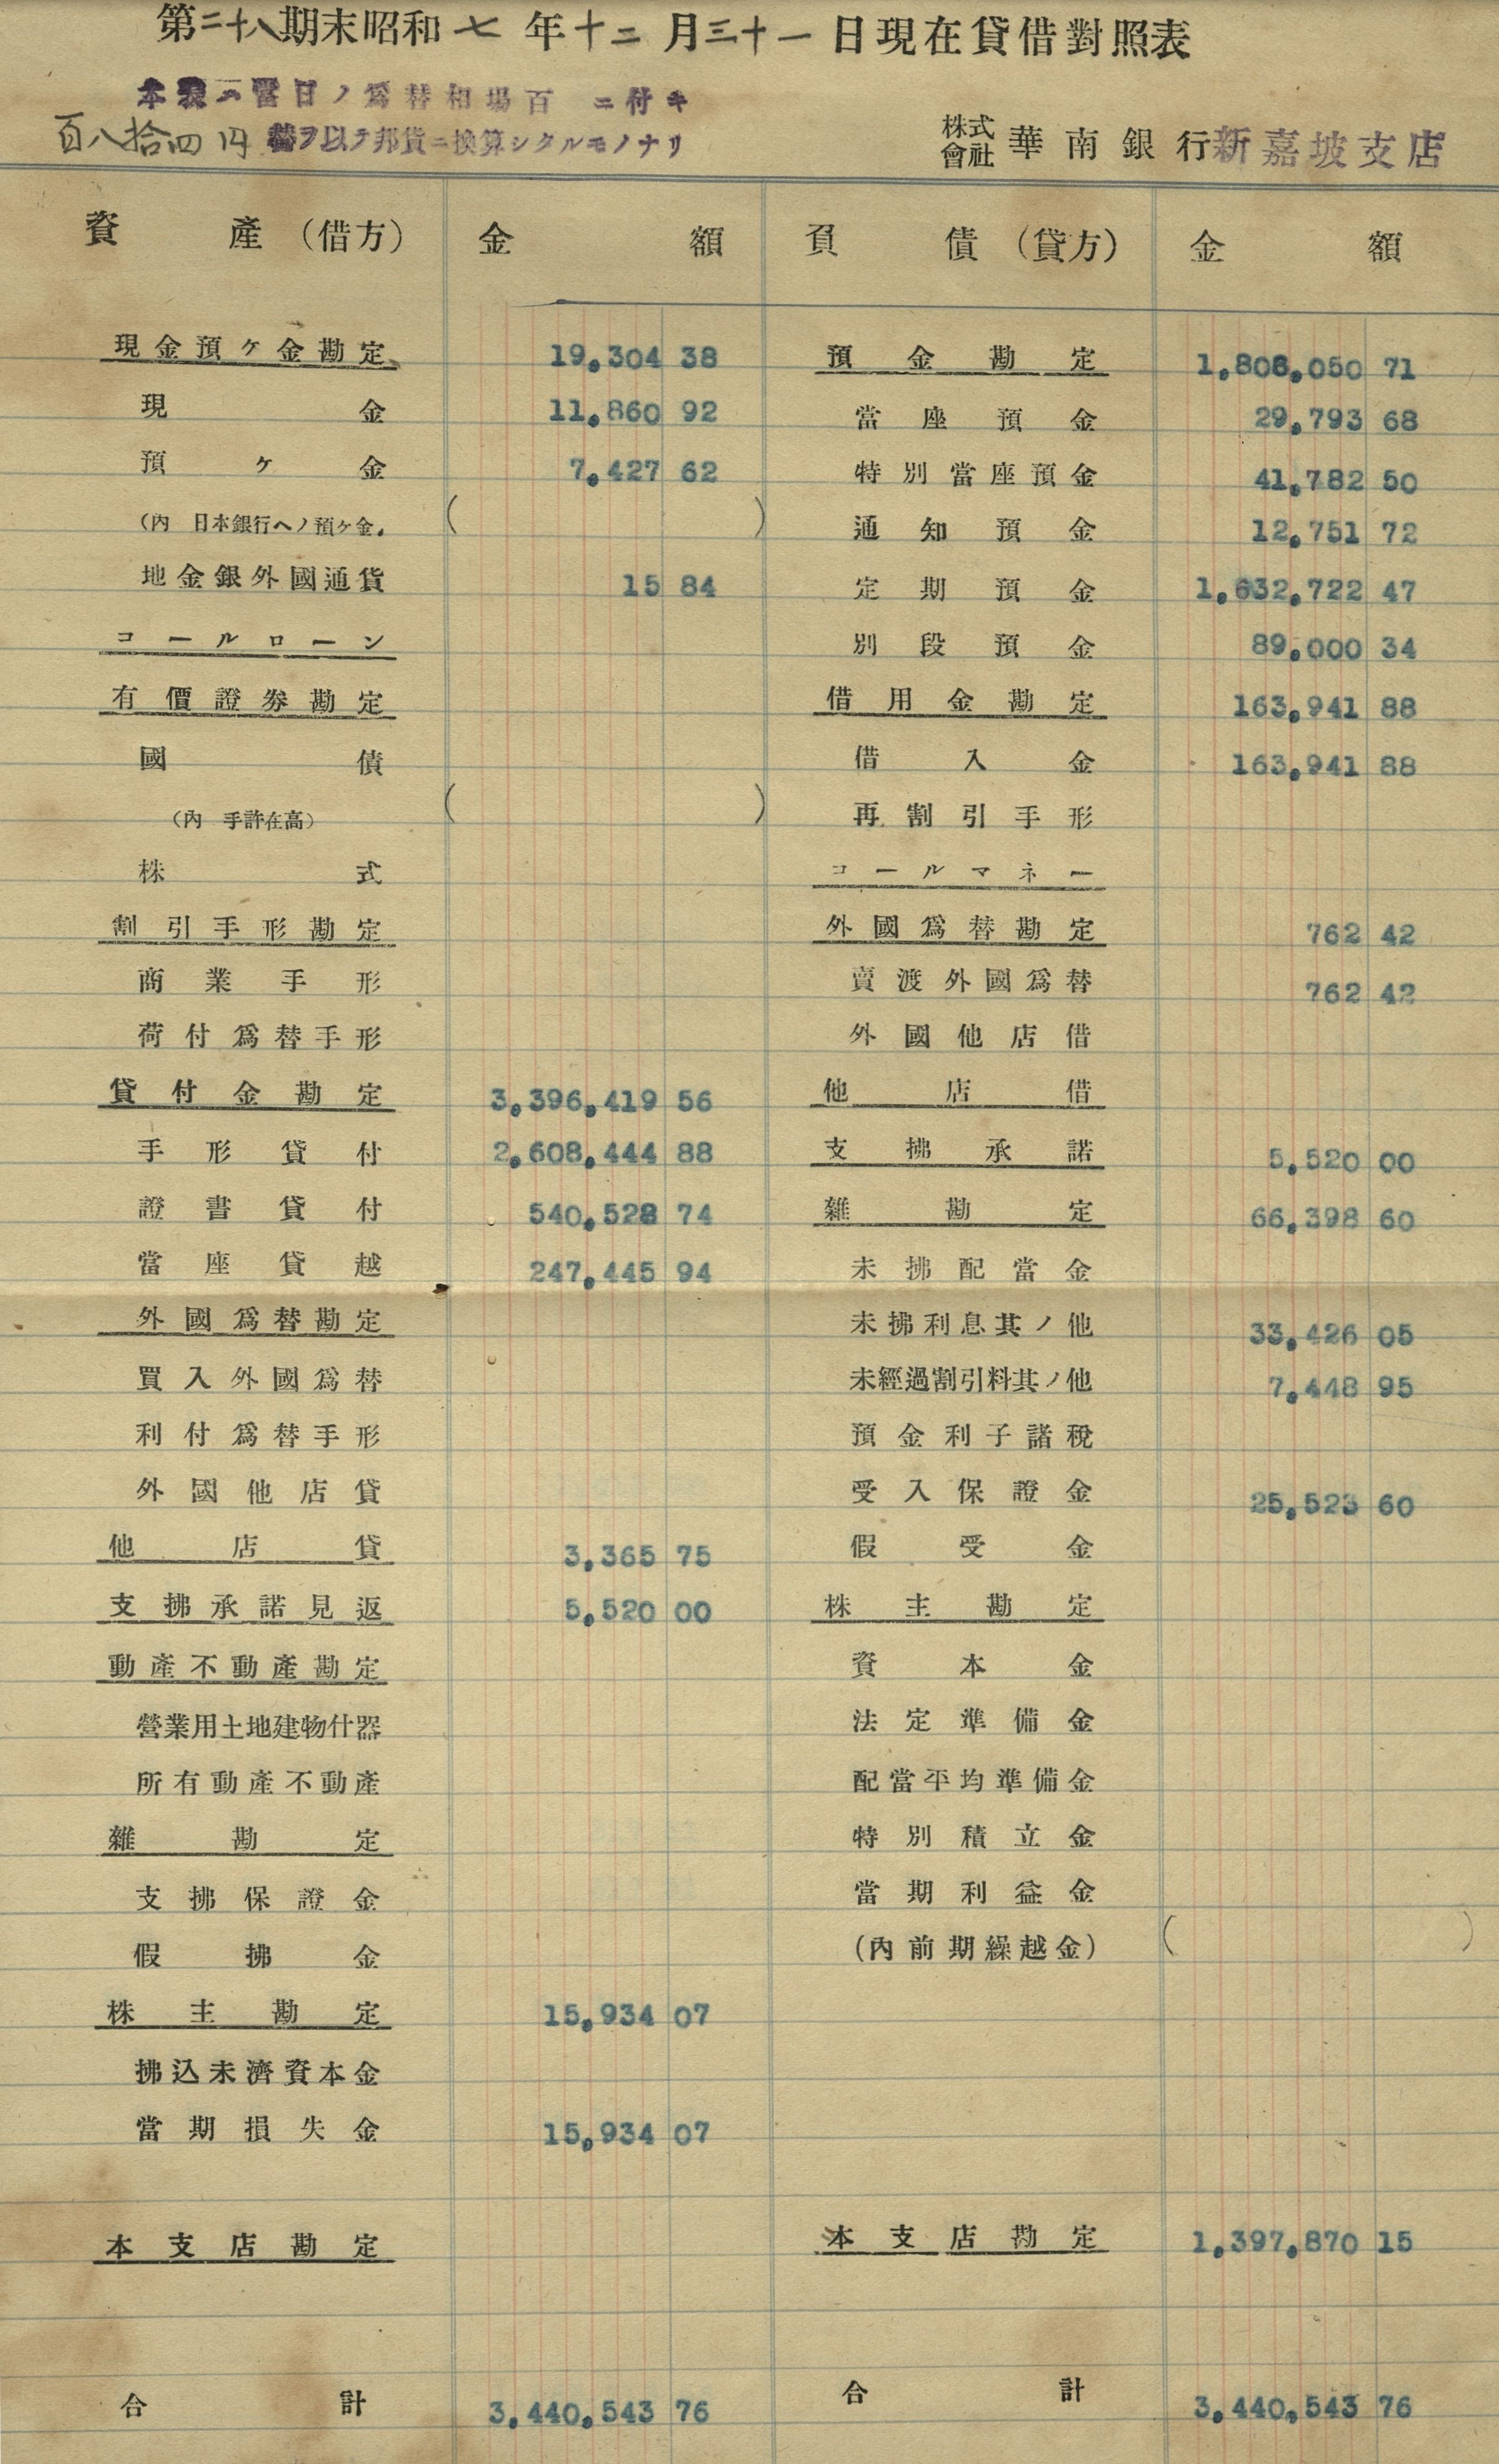 第二十八期末昭和七年十二月三十一日現在貸借對照表
本表ハ當日ノ爲替相場百 ニ付キ
百八拾四円 替ヲ以テ邦貨ニ換算シタルモノナリ
株式會社 華南銀行新嘉坡支店
資產(借方) 金額 負債(貸方) 金額
現金預ケ金勘定 19,304 38 預金勘定 1,806,050 71
現金 11,860 92 當座預金 29,793 68
預ケ金 7,427 62 特別當座預金 41,782 50
(內 日本銀行ヘノ預ケ金) ( ) 通知預金 12,751 72
地金銀外國通貨 15 84 定期預金 1,632,722 47
コールローン 別段預金 89,000 34
有價證券勘定 借用金勘定 163,941 88
國債 借入金 163,941 88
(內 手許在高) ( ) 再割引手形
株式 コールマネー
割引手形勘定 外國爲替勘定 762 42
商業手形 賣渡外國爲替 762 42
荷付爲替手形 外國他店借
貸付金勘定 3,396,419 56 他店借
手形貸付 2,608,444 88 支拂承諾 5,520 00
證書貸付 540,528 74 雜勘定 66,398 60
當座貸越 247,445 94 未拂配當金
外國爲替勘定 未拂利息其ノ他 33,426 05
買入外國爲替 未經過割引料其ノ他 7,448 95
利付爲替手形 預金利子諸稅
外國他店貸 受入保證金 25,523 60
他店貸 3,365 75 假受金
支拂承諾見返 5,520 00 株主勘定
動產不動產勘定 資本金
營業用土地建物什器 法定準備金
所有動產不動產 配當平均準備金
雜勘定 特別積立金
支拂保證金 當期利益金
假拂金 (內前期繰越金) ( )
株主勘定 15,934 07
拂込未濟資本金
當期損失金 15,934 07
本支店勘定 本支店勘定 1,397,870 15
合計 3,440,543 76 合計 3,440,543 76